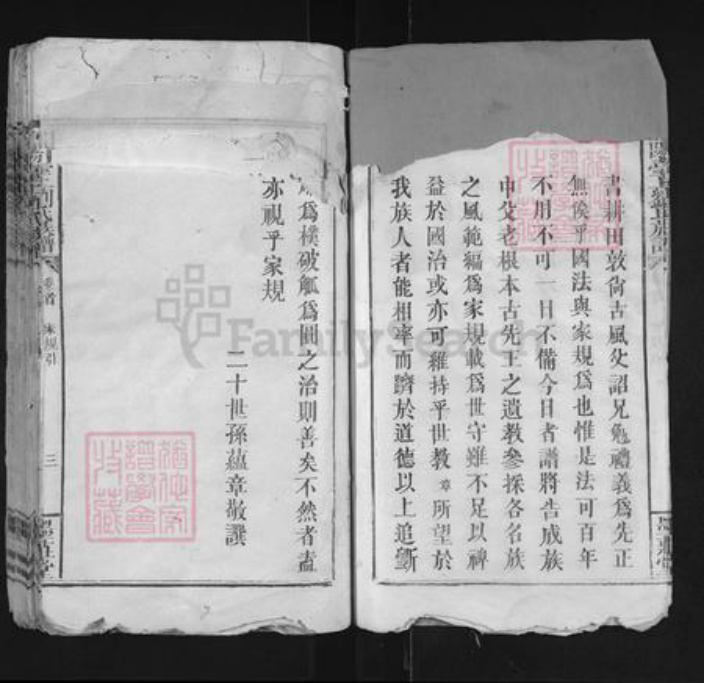 書耕田敦尙古風父詔兄勉禮義爲先正
無俟乎國法與家規爲也惟是法可百年
不用不可一日不備今日者譜將告成族
中父老根本古先王之遺教參採各名族
之風範編爲家規載爲世守雖不足以裨
益於國治或亦可維持乎世教章所望於
我族人者能相率而躋於道德以上追斲
爲樸破觚爲圜之治則善矣不然者盍
亦視乎家規
二十世孫蘊章敬譔
卷首
家規引
三
FamilySearch